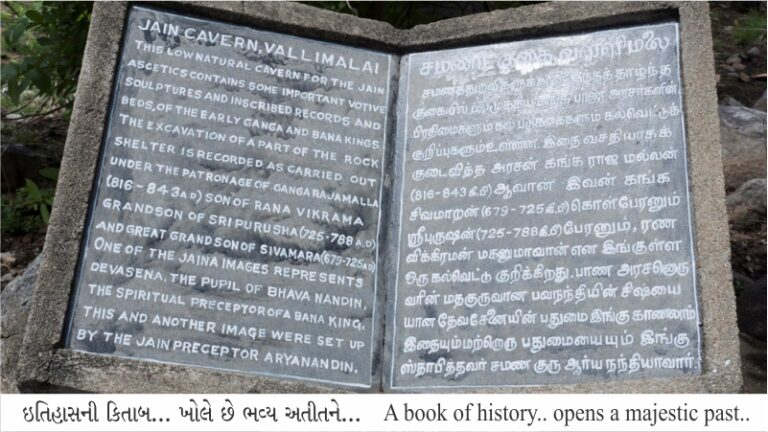 JAIN CAVERN, VALLIMALAI
THIS LOW NATURAL CAVERN FOR THE JAIN
ASCETICS CONTAINS SOME IMPORTANT VOTIVE
SCULPTURES AND INSCRIBED RECORDS AND
BEDS, OF THE EARLY GANGA AND BANA KINGS
THE EXCAVATION OF A PART OF THE ROCK
SHELTER IS RECORDED AS CARRIED OUT
UNDER THE PATRONAGE OF GANGARAJAMALLA
(816-843 A.D) SON OF RANA VIKRAMA
GRANDSON OF SRI PURUSHA (725-788 A.D)
AND GREAT GRANDSON OF SIVAMARA (679-725 A.D)
ONE OF THE JAINA IMAGES REPRESENTS
DEVASENA, THE PUPIL OF BHAVA NANDIN,
THE SPIRITUAL PRECEPTOR OF A BANA KING,
THIS AND ANOTHER IMAGE WERE SET UP
BY THE JAIN PRECEPTOR ARYANANDIN.
சமணர் குகை வள்ளிமலை
தாழ்ந்த
குகையில்
பிரதிமைகளும் கல் படுக்கைகளும் கல்வெட்டுக்
குறிப்புகளும் உள்ளன. இதை வசதியாகக்
குடைவித்த அரசன் கங்க ராஜ மல்லன்
(816-843 கி.பி) ஆவான் இவன் கங்க
சிவமாறன் (679-725 கி.பி) கொள்பேரனும்
ஸ்ரீபுருஷன் (725-788 கி.பி) பேரனும், ரண
விக்கிரமன் மகனுமாவான் என இங்குள்ள
ஒரு கல்வெட்டு குறிக்கிறது. பாண அரசனொரு
வரின் மதகுருவான பவநந்தியின் சிஷ்யை
யான தேவசேனையின் பதுமை இங்கு காணலாம்
இதையும் மற்றொரு பதுமையையும் இங்கு
ஸ்தாபித்தவர் சமண குரு ஆர்ய நந்தியாவார்
ઇતિહાસની કિતાબ... ખોલે છે ભવ્ય અતીતને... A book of history.. opens a majestic past..